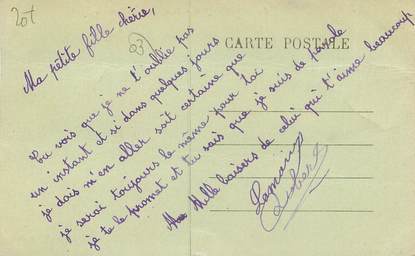 201
(03)
CARTE POSTALE
Ma petite fille chérie,
Tu vois que je ne t'oublie pas
un instant et si dans quelques jours
je dois m'en aller soit certaine que
je serai toujours le même pour toi
je te le promet et tu sais que je suis de parole
Mille baisers de celui qui t'aime beaucoup